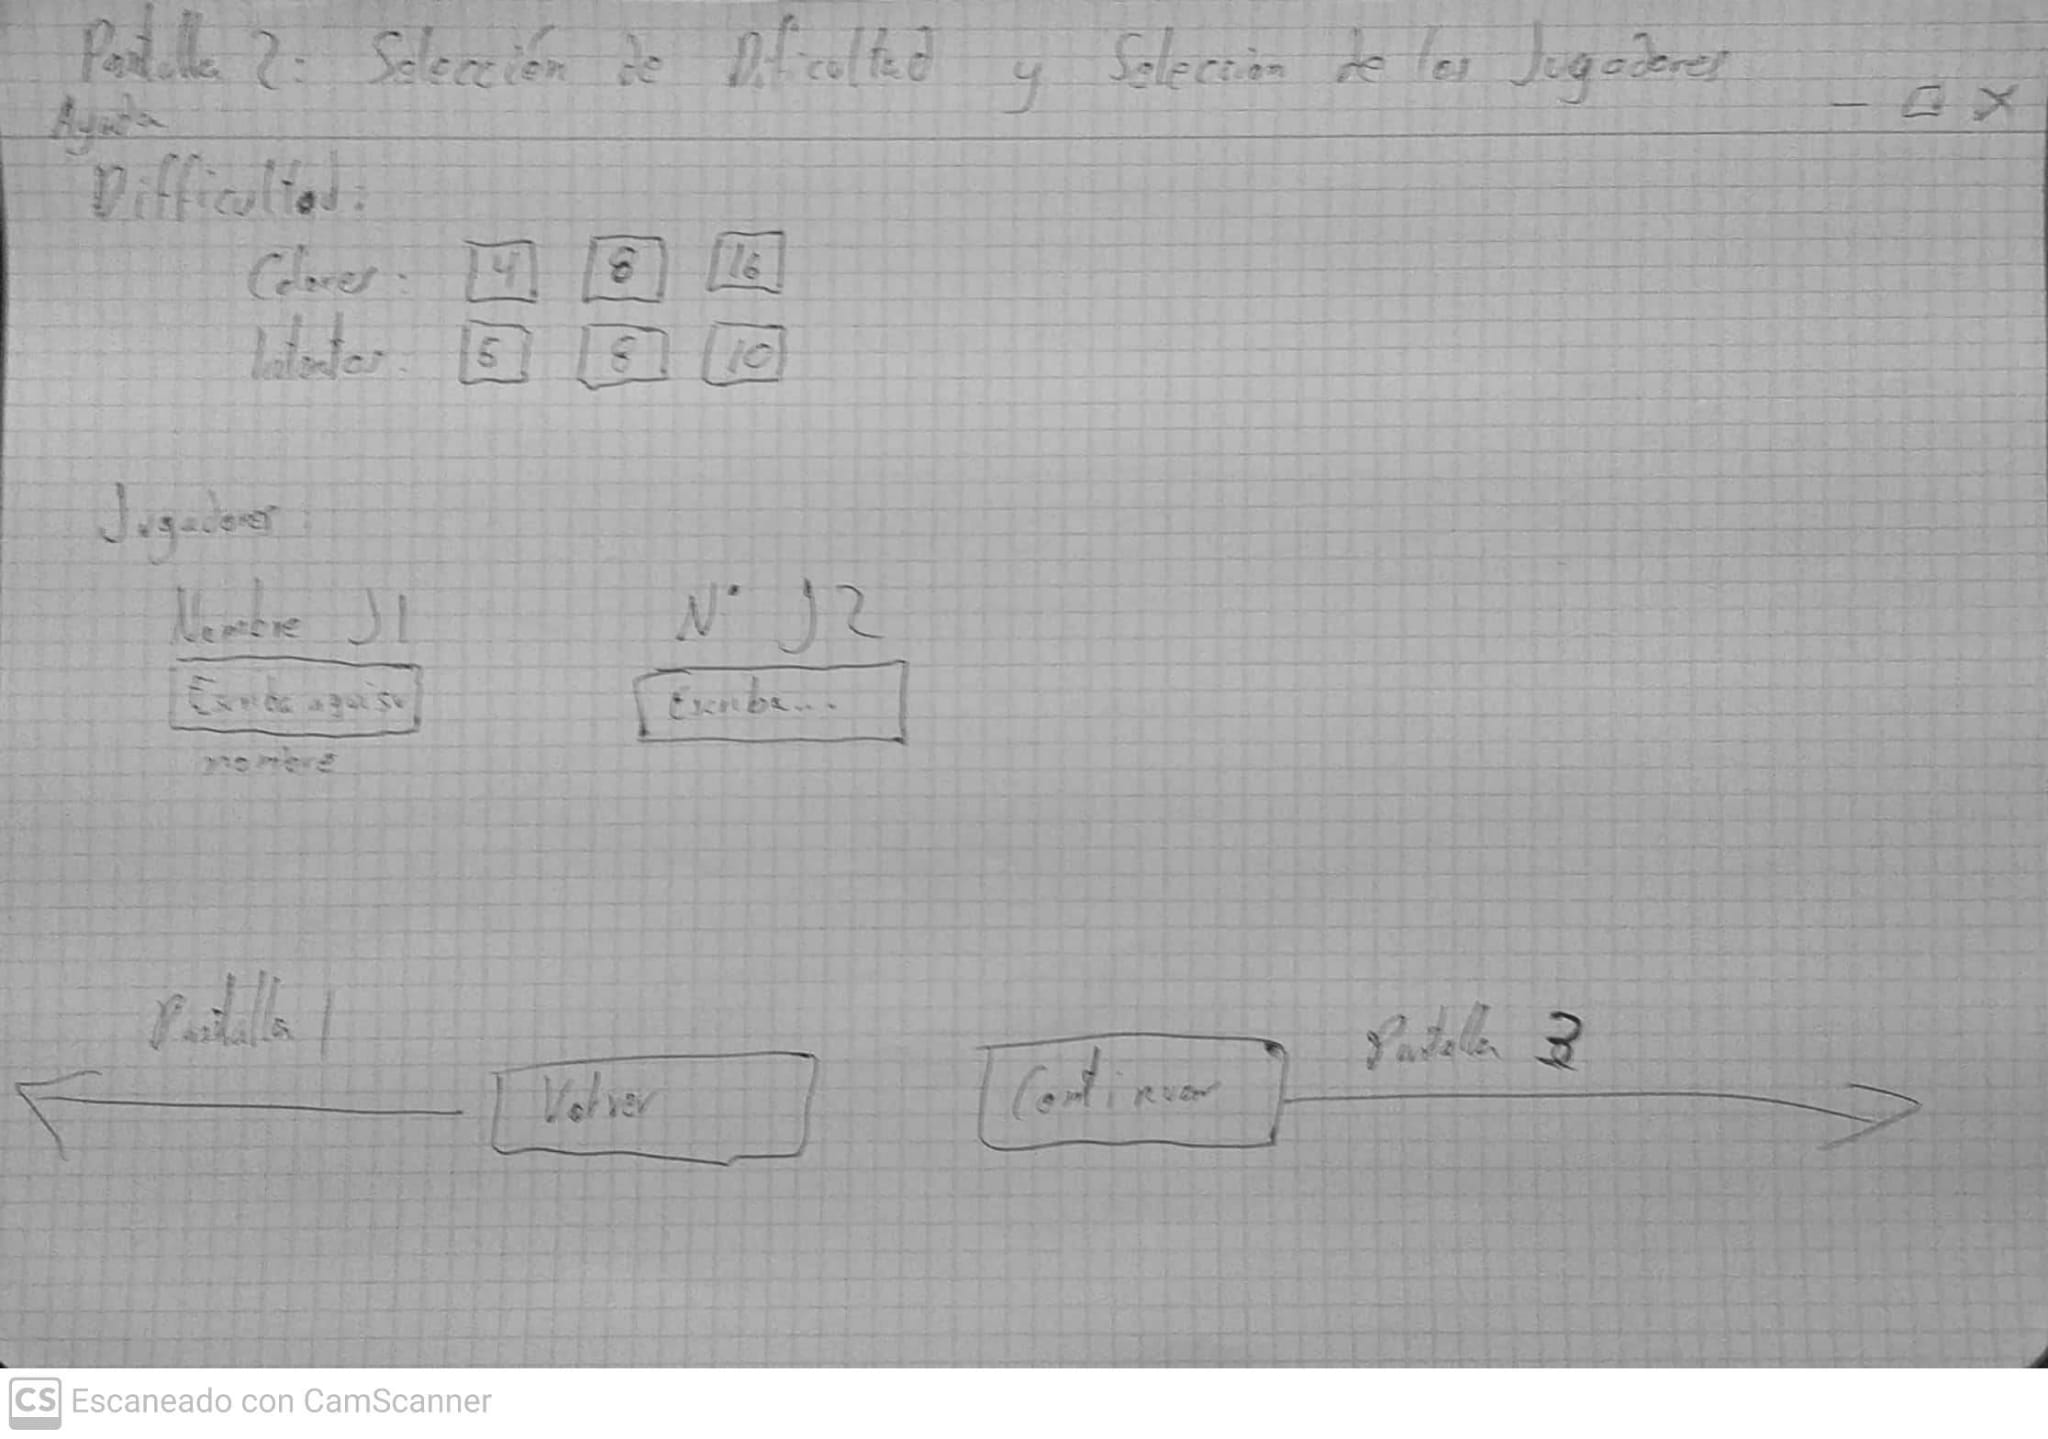 Pantalla 2: Selección de Dificultad y Selección de los Jugadores
Ayuda
Difficultad:
Colores: 4 8 16
Intentos: 6 8 10
Jugadores:
Nombre J1 Nº J2
Escriba aquí su Escriba...
nombre
Pantalla 1 Pantalla 3
Volver Continuar
CS Escaneado con CamScanner